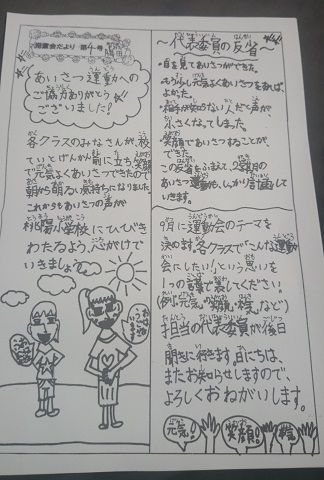 児童会だより 第4号
あいさつ運動への
ご協力ありがとう
ございました!
各クラスのみなさんが、校
ていとげんかん前に立ち笑顔
で元気よくあいさつできたので
朝から明るい気持ちになりました。
これからもあいさつの声が
小学校にていひびき
わたるよう心がけて
いきましょう。
おはようございます
~代表委員の反省~
・目を見てあいさつができた。
・もう少し元気よくあいさつをすれば、
よかった。
・相手が知らない人だと声が、
小さくなってしまった。
・笑顔であいさつすることが、
できた。
この反省をふまえて、2学期の
あいさつ運動も、しっかり計画して
いきます。
9月に運動会のテーマを
決めます。各クラスで「こんな運動
会にしたい!」という思いを
1つの言葉で表してください。
(例元気、笑顔・など)
担当の代表委員が後日
聞きに行きます。日にちは、
またお知らせしますので、
よろしくおねがいします。
元気!
笑顔!